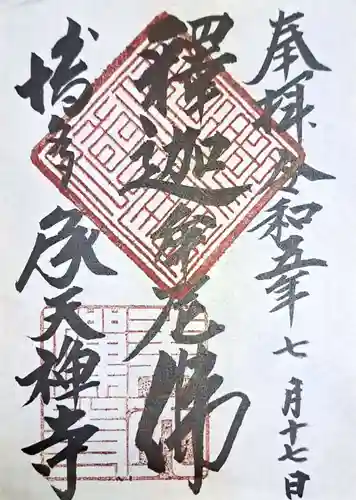 奉拝 令和五年 七月十七日
釋迦牟尼佛
博多 承天禅寺